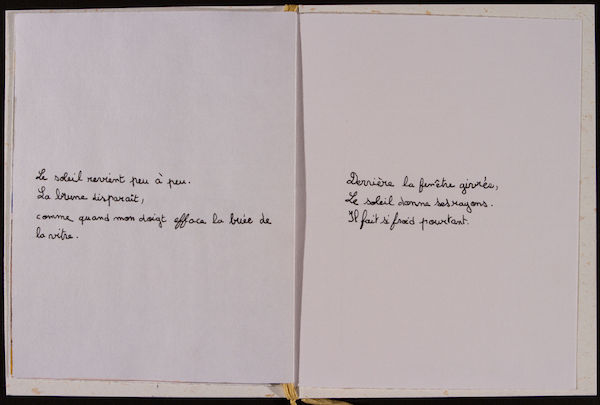 Le soleil revient peu à peu.
La brume disparaît,
comme quand mon doigt efface la buée de
la vitre.
Derrière la fenêtre givrée,
Le soleil donne ses rayons.
Il fait si froid pourtant.